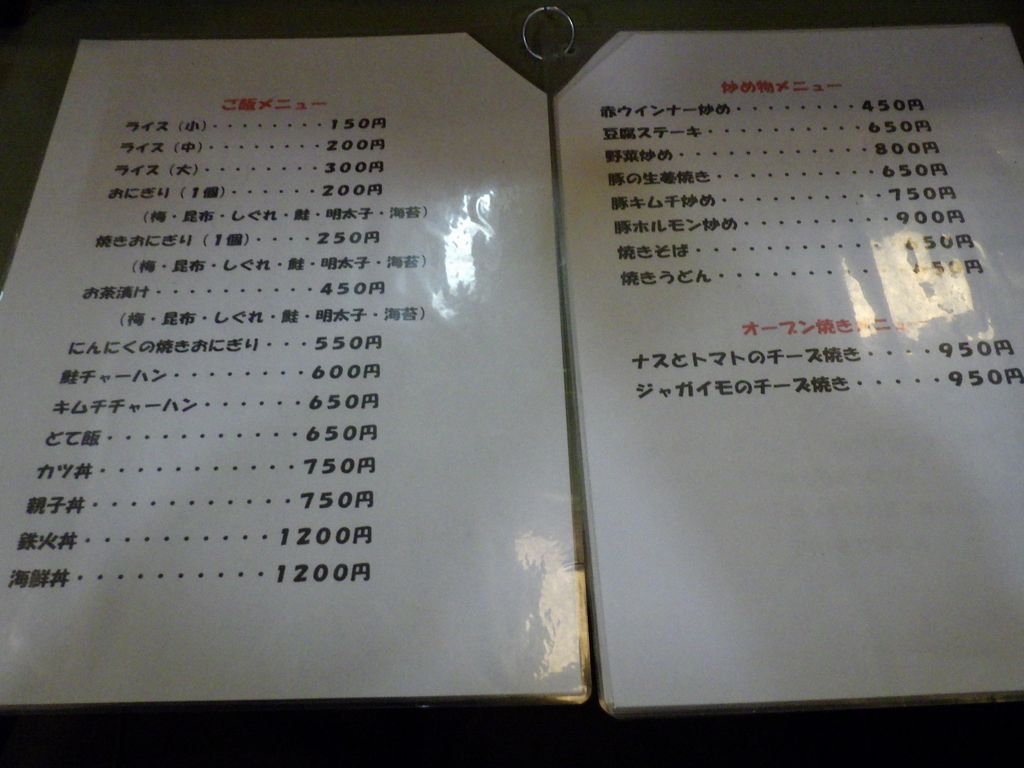 ご飯メニュー
ライス（小）・・・・・・・・150円
ライス（中）・・・・・・・・200円
ライス（大）・・・・・・・・300円
おにぎり（1個）・・・・・・200円
（梅・昆布・しぐれ・鮭・明太子・海苔）
焼きおにぎり（1個）・・・・250円
（梅・昆布・しぐれ・鮭・明太子・海苔）
お茶漬け・・・・・・・・・・450円
（梅・昆布・しぐれ・鮭・明太子・海苔）
にんにくの焼きおにぎり・・・550円
鮭チャーハン・・・・・・・・600円
キムチチャーハン・・・・・・650円
どて飯・・・・・・・・・・・650円
カツ丼・・・・・・・・・・・750円
親子丼・・・・・・・・・・・750円
鉄火丼・・・・・・・・・・1200円
海鮮丼・・・・・・・・・・1200円
炒め物メニュー
赤ウインナー炒め・・・・・・・・450円
豆腐ステーキ・・・・・・・・・・650円
野菜炒め・・・・・・・・・・・・800円
豚の生姜焼き・・・・・・・・・・650円
豚キムチ炒め・・・・・・・・・・750円
豚ホルモン炒め・・・・・・・・・900円
焼きそば・・・・・・・・・・・650円
焼きうどん・・・・・・・・・・
オーブン焼きメニュー
ナスとトマトのチーズ焼き・・・・950円
ジャガイモのチーズ焼き・・・・・950円